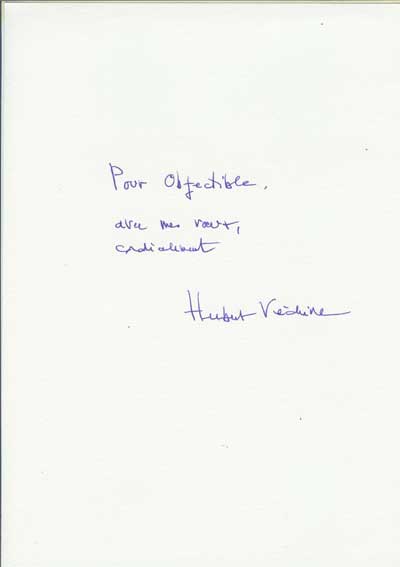 Pour Objectible,
avec mes vœux,
cordialement
Hubert Védrine